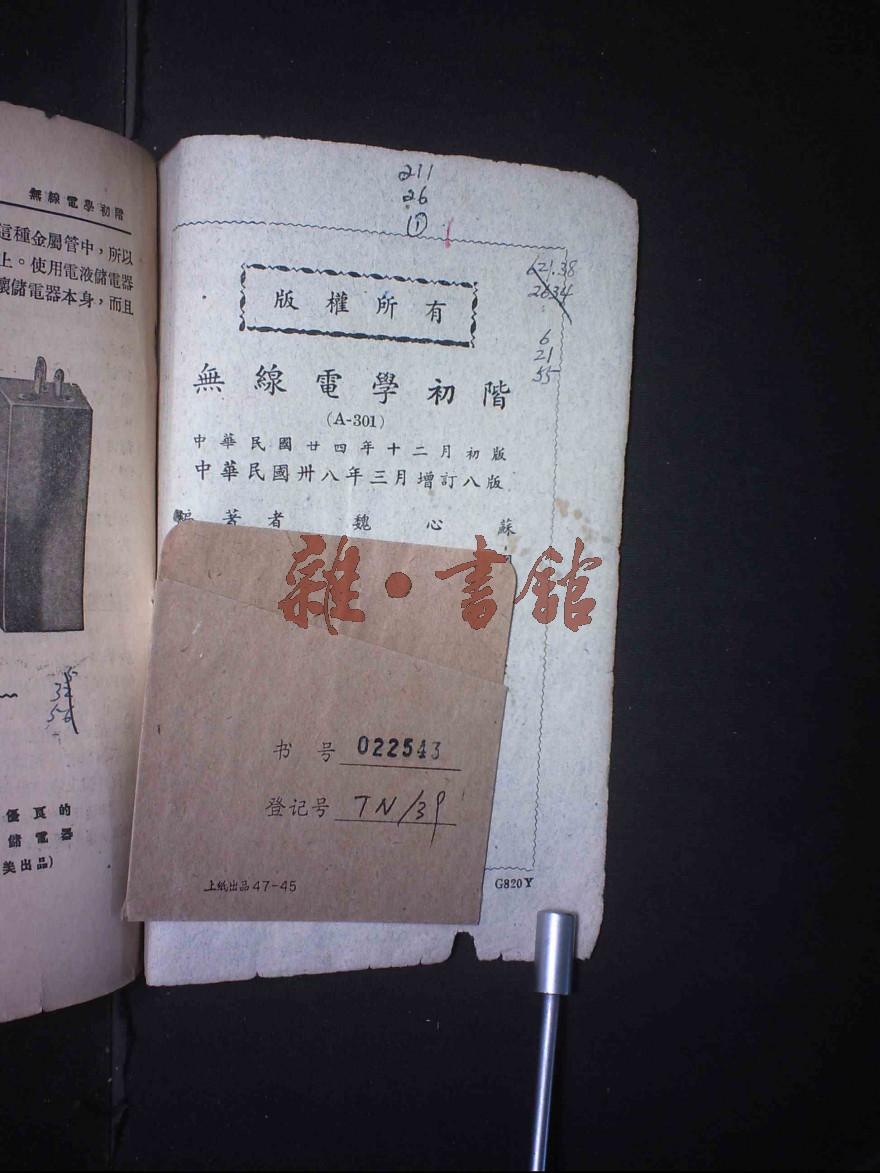 無線電學初階
這種金屬管中，所以
上。使用電液儲電器
壞儲電器本身，而且
優良的
儲電器
美出品)
211
26
①
621.38
2634
6
21
55
版權所有
無線電學初階
(A-301)
中華民國廿四年十二月初版
中華民國卅八年三月增訂八版
編著者 魏心蘇
雜·書館
书号 022543
登记号 TN/39
上紙出品 47-45
G820Y